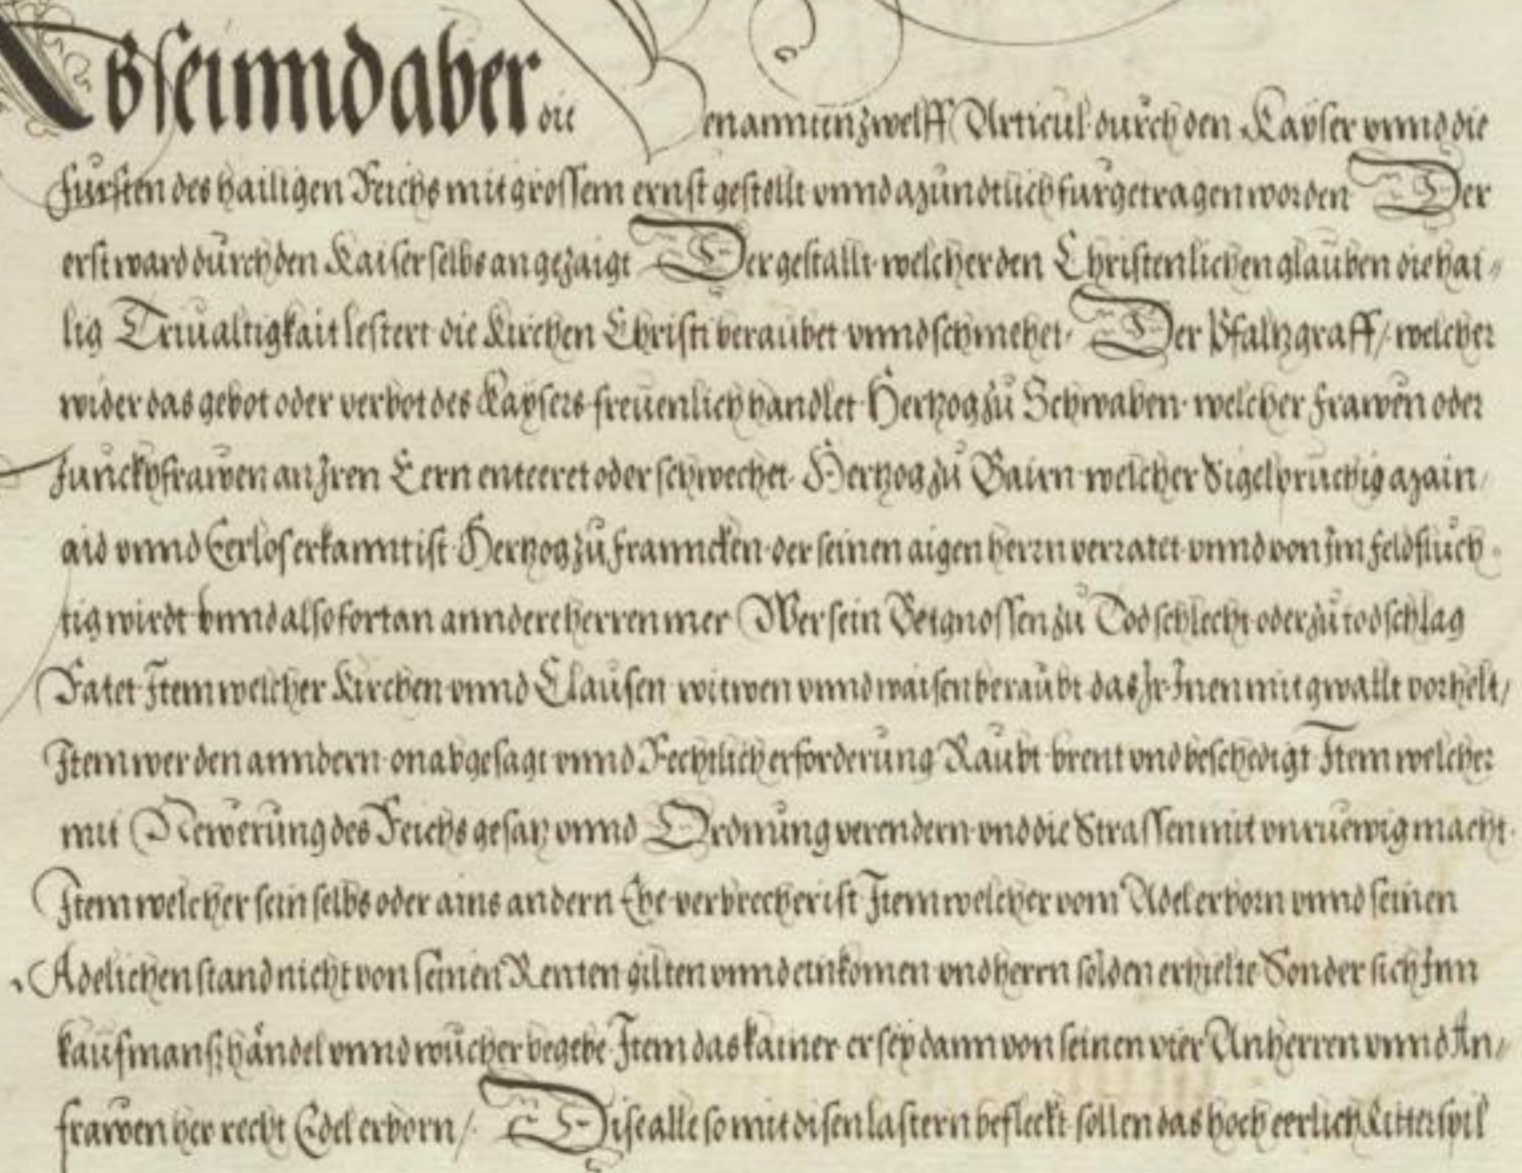 Es seinnd aber die Benannten zwelff Articul durch den Kayser vnnd die
fürsten des hailigen Reichs mit grossem ernst gestellt vnnd a gründtlich furgetragen worden Der
erst ward durch den Kaiser selbs angezaigt Der gestallt welcher den Christenlichen glauben die hai-
lig Triualtigkait lestert die Kirchen Christi beraubet vnnd schmehet Der Pfaltzgraff / welcher
wider das gebot oder verbot des Kaysers freuenlich handlet Hertzog zů Schwaben welcher frawen oder
Junckhfrawen an Jren Eern enteeret oder schwechet Hertzog zů Bairn welcher Sigelprüchig a main /
aid vnnd Eerlos erkannt ist Hertzog zů Franncken der seinen aigen herrn verratet vnnd von Jm feldflüch-
tig wirdt vnnd also fortan anndere herren mer Wer sein Betgnossen zů Tod schlecht oder zů todschlag
Ratet Jtem welcher Kirchen vnnd Clausen witwen vnnd waisen beraubt das Jr Jnen mit gwallt vorhelt /
Jtem wer den anndern onabgesagt vnnd Rechtlich erforderung Raubt brent vnd beschedigt Jtem welcher
mit Newerung des Reichs gesatz vnnd Ordnung verendern vnd die Strassen mit vnruewig macht
Jtem welcher sein selbs oder ains andern Ehe verbrecher ist Jtem welcher vom Adel erborn vnnd seinen
Adelichen stand nicht von seinen Renten gilten vnnd einkomen vnd herrn sölden erhielte Sonder sich Jnn
kaufmans händel vnnd wucher begebe Jtem das kainer er sey dann von seinen vier Anherren vnnd An-
frawen her recht Edel erborn / Dise alle so mit disen lastern befleckt sollen das hoch eerlich Ritterspil